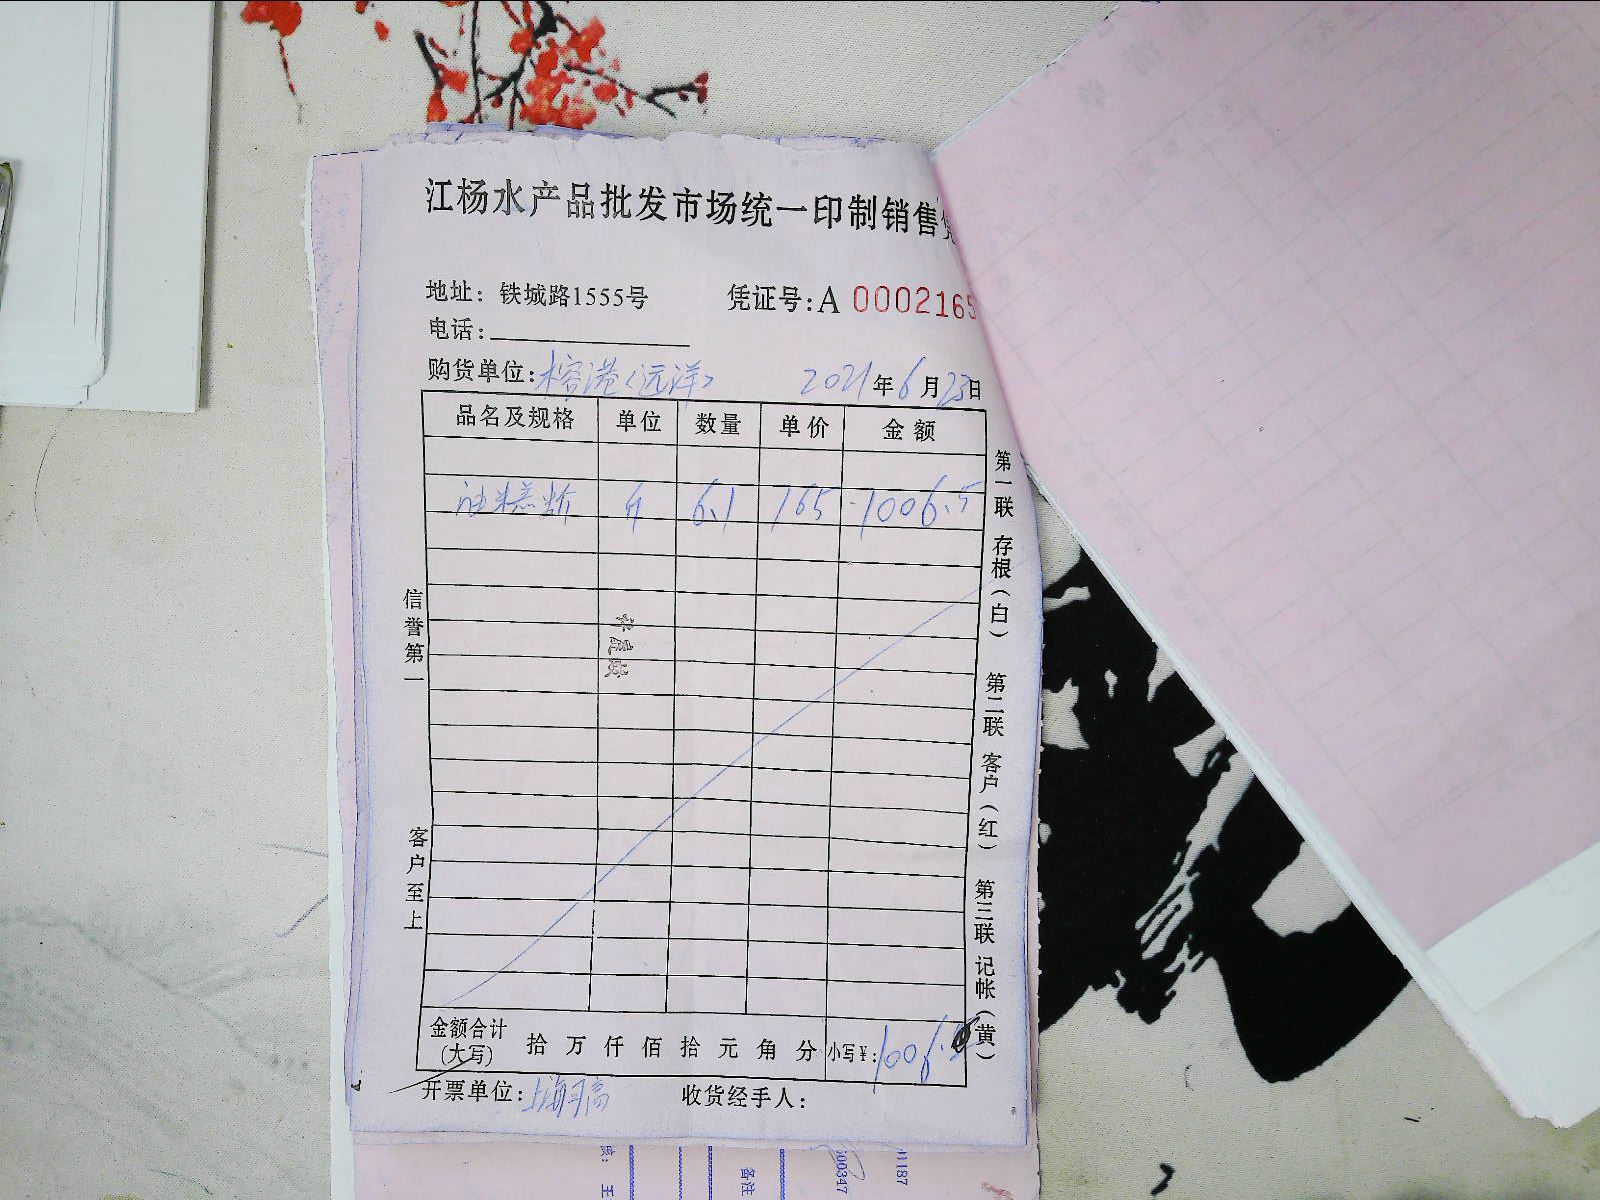 江杨水产品批发市场统一印制销售凭
地址：铁城路1555号 凭证号：A 0002165
电话：
购货单位：榕港（远洋） 2021年6月23日
品名及规格 单位 数量 单价 金额
斤 6.1 165 1006.5
信誉第一
客户至上
第一联 存根（白） 第二联 客户（红） 第三联 记帐（黄）
金额合计（大写） 拾 万 仟 佰 拾 元 角 分 小写¥：1006.5
开票单位：上海 收货经手人：
备注
01187